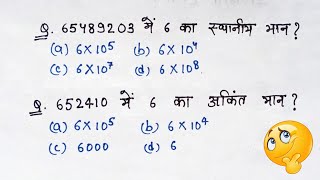 Q. 65489203 में 6 का स्थानीय मान ?
(a) 6×10⁵ (b) 6×10⁴
(c) 6×10⁷ (d) 6×10⁸
Q. 652410 में 6 का अकिंत मान ?
(a) 6×10⁵ (b) 6×10⁴
(c) 6000 (d) 6